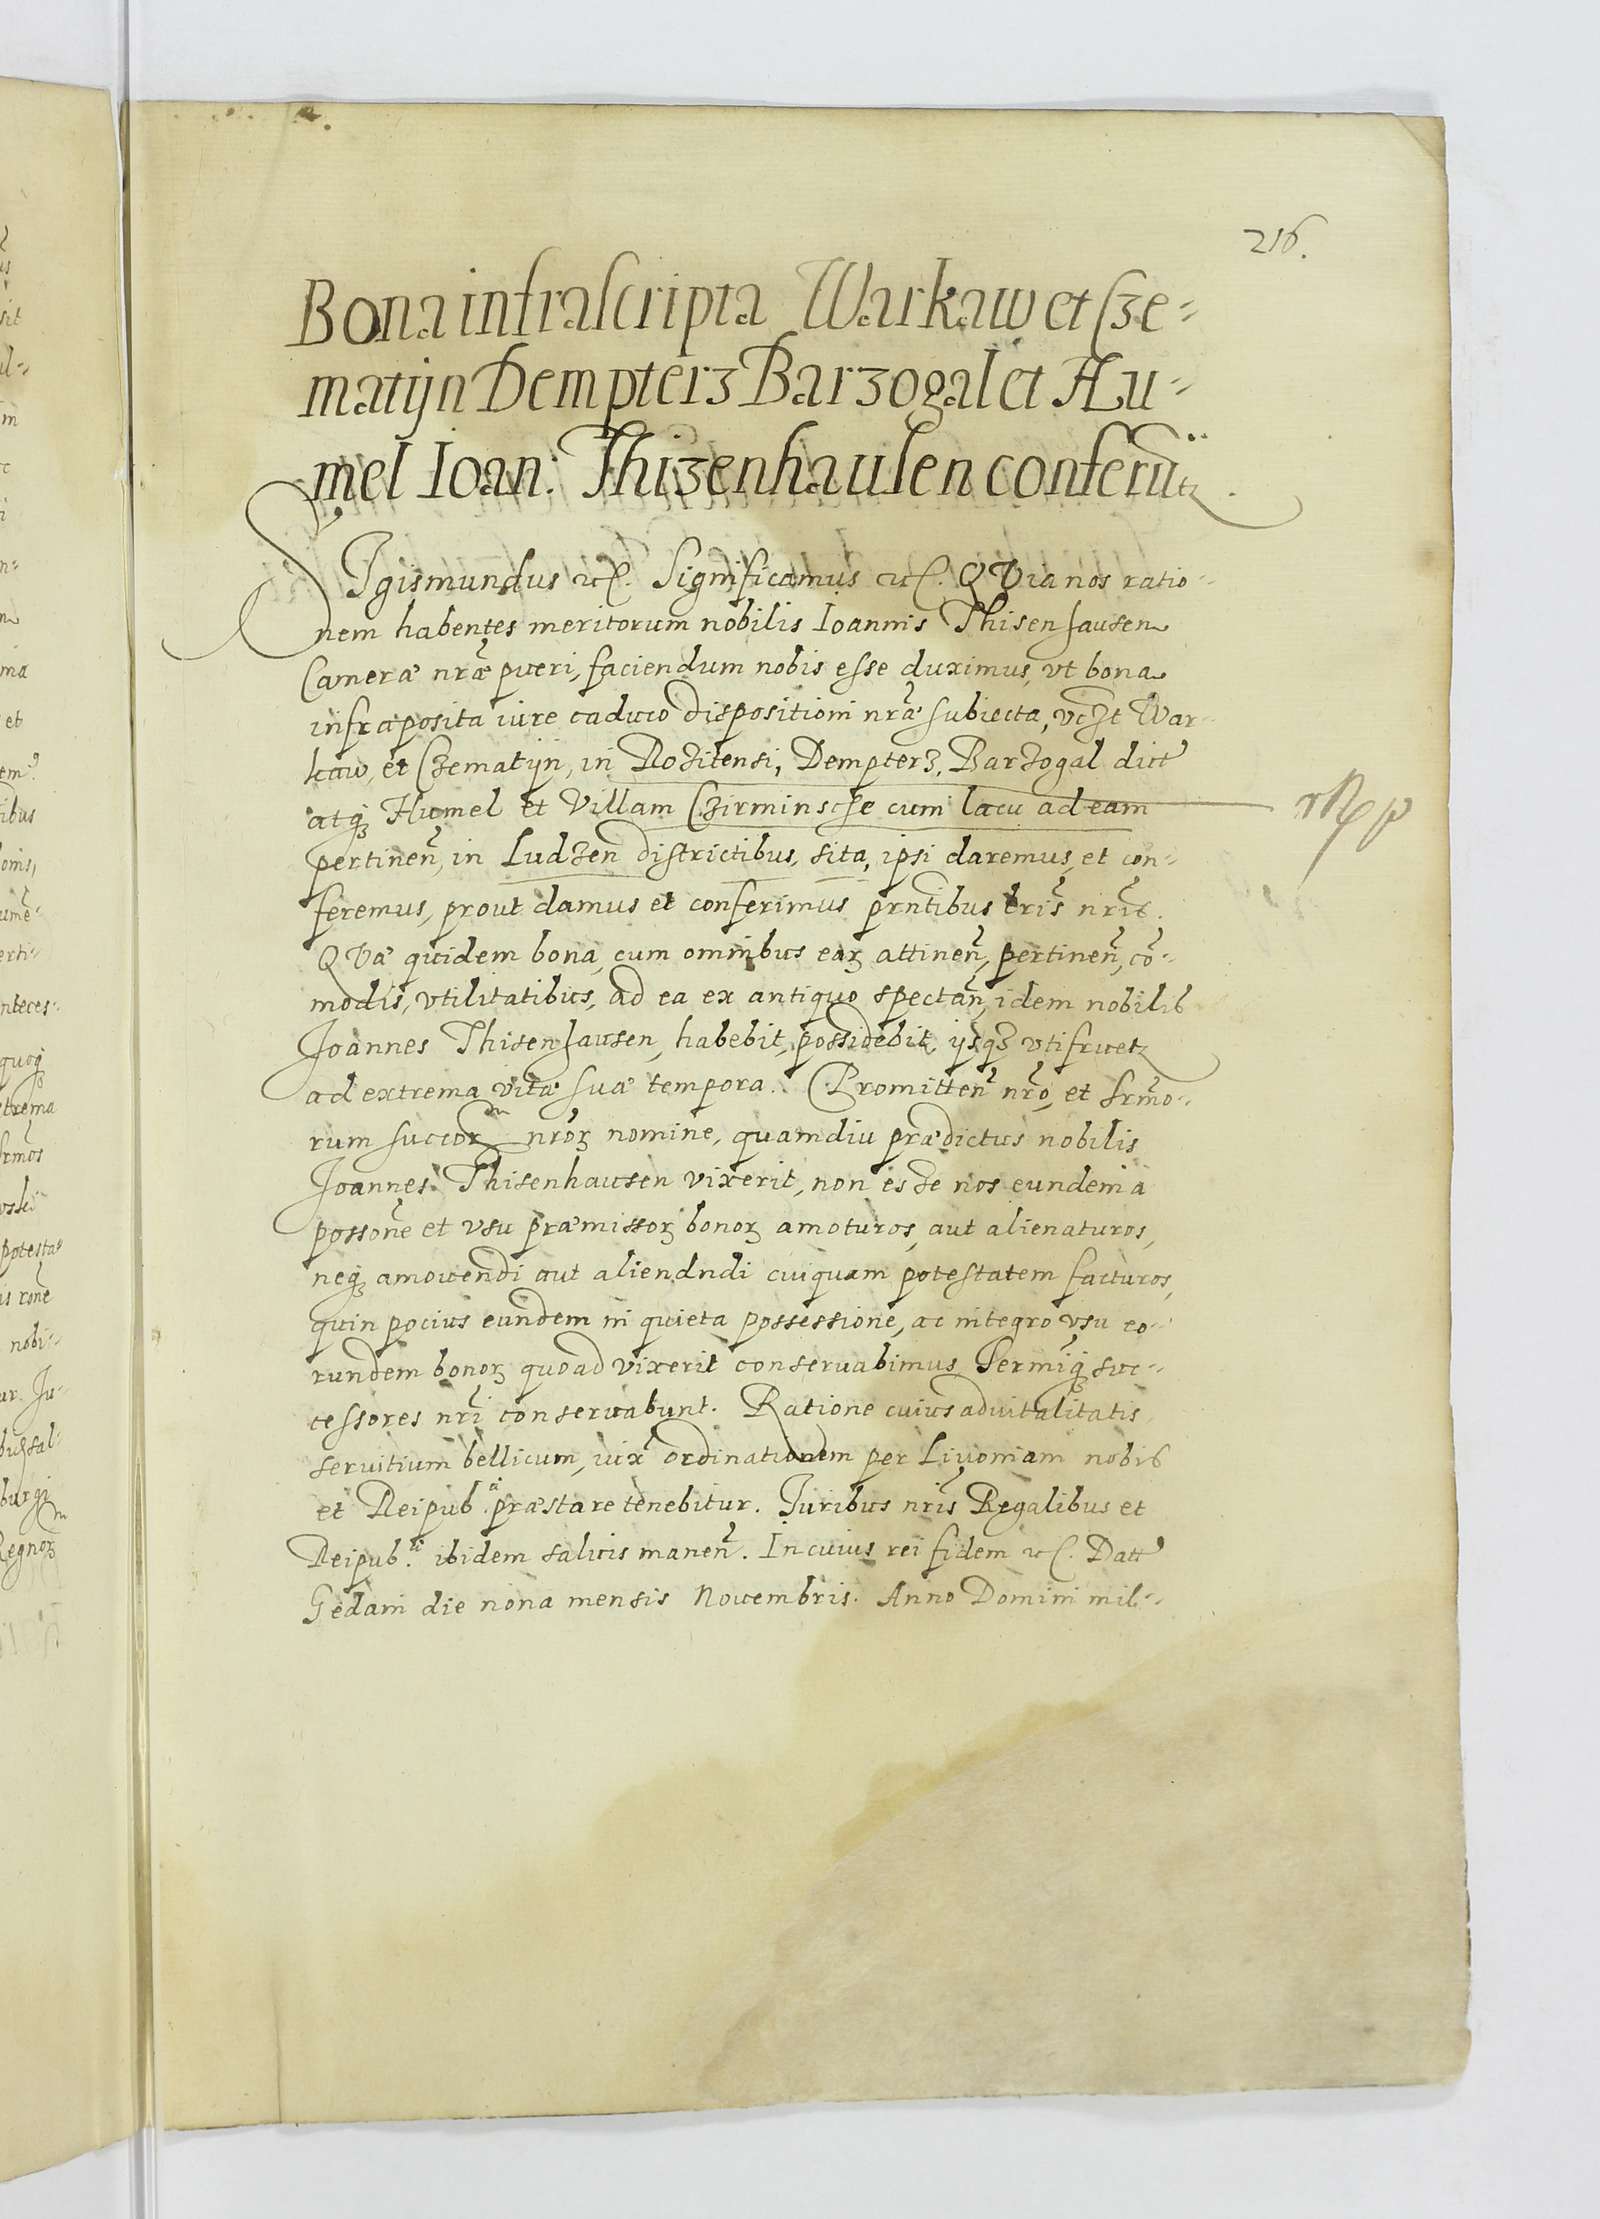 216.
Bona infrascripta Warkaw et Cze-
matijn Dempterz Barzogal et Hu-
mel Ioan: Thizenhausen conferūtz.
SIgismundus etc. Significamus etc. QVia nos ratio-
nem habentes meritorum nobilis Ioannis Thisenhausen
Cameræ nr̃æ pueri, faciendum nobis esse duximus, vt bona
infraposita iure caduco dispositioni nr̃æ subiecta, vczt War-
kaw, et Czematijn, in Rozitensi, Dempterz, Barzogal dict
atqꝫ Humel et Villam Czirminsche cum lacu ad eam
pertineñ, in Ludzen districtibus, sita, ipsi daremus, et con-
feremus, prout damus et conferimus prñtibus lr̃is nr̃is.
QVæ quidem bona, cum omnibus eaꝝ attineñ, pertineñ, cõ-
modis, vtilitatibus, ad ea ex antiquo spectañ, idem nobilis
Joannes Thisenhausen, habebit, possidebit, ijsqꝫ vtifruetz
ad extrema vitæ suæ tempora. Promitteñ nr̃o, et Srm̃o-
rum succoꝝ nr̃oꝝ nomine, quamdiu prædictus nobilis
Joannes Thisenhausen vixerit, non esse nos eundem a
possoñe et vsu præmissoꝝ bonoꝝ amoturos, aut alienaturos,
neqꝫ amouendi aut aliendndi cuiquam potestatem facturos,
quin pocius eundem in quieta possessione, ac integro vsu eo-
rundem bonoꝝ quoad vixerit conseruabimus Sermiqꝫ suc-
cessores nr̃i conseruabunt. Ratione cuius aduitalitatis
seruitium bellicum, iux ordinationem per Liuoniam nobis
et Reipub. præstare tenebitur. Juribus nr̃is Regalibus et
Reipub. ibidem saluis maneñ. In cuius rei fidem etc. Datt
Gedani die nona mensis Nouembris. Anno Domini mil-